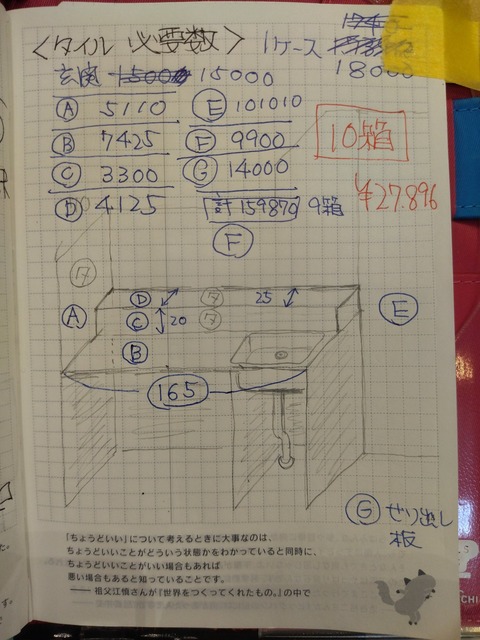 <タイル 必要数> 1ケース
玄関 15000 15000 18000
Ⓐ 5110 Ⓔ 101010
Ⓑ 7425 Ⓕ 9900
Ⓒ 3300 Ⓖ 14000
Ⓓ 4125 計159870 9箱
10箱
¥27.896
Ⓕ
Ⓓ 25
Ⓐ Ⓒ 20 Ⓔ
Ⓑ
165
Ⓖ せり出し
板
「ちょうどいい」について考えるときに大事なのは、
ちょうどいいことがどういう状態かをわかっていると同時に、
ちょうどいいことがいい場合もあれば
悪い場合もあると知っていることです。
―― 祖父江慎さんが『世界をつくってくれたもの。』の中で